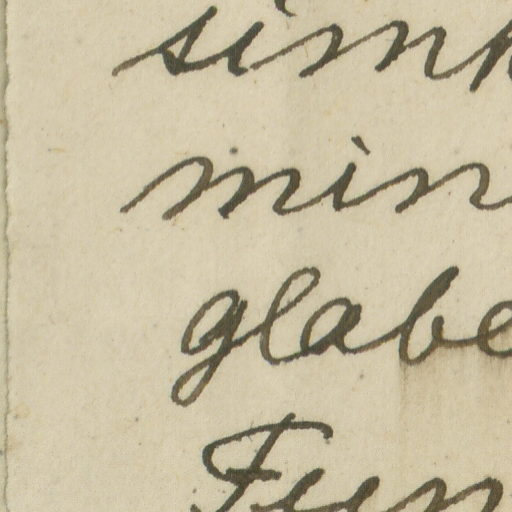 sim
min
glabe
Fun